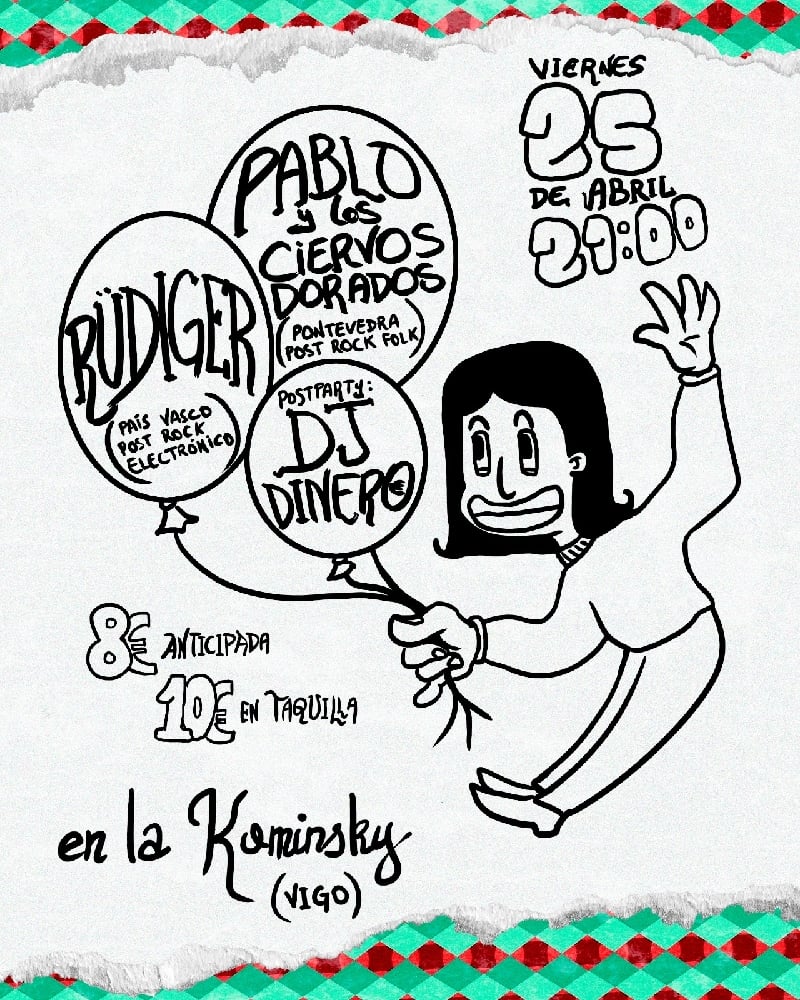 VIERNES
25
DE ABRIL
21:00
PABLO
y los
CIERVOS
DORADOS
(PONTEVEDRA
POST ROCK FOLK)
RÜDIGER
(PAÍS VASCO
POST ROCK
ELECTRÓNICO)
POSTPARTY:
DJ
DINERO
8€ ANTICIPADA
10€ EN TAQUILLA
en la Kominsky
(VIGO)